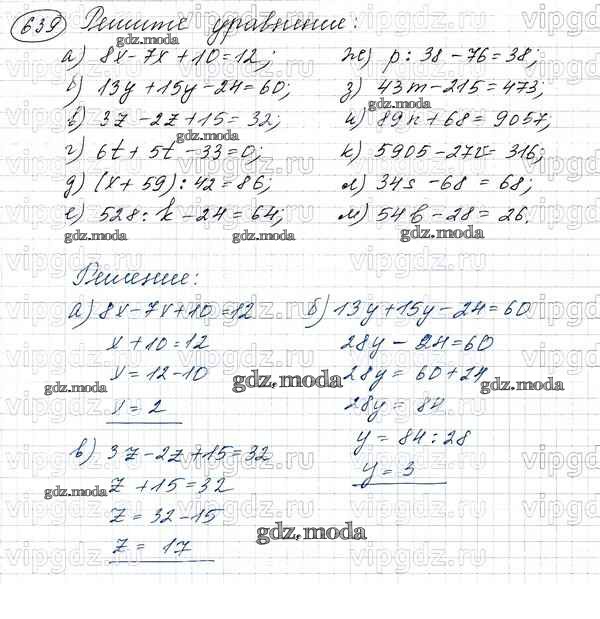 639 Решите уравнение:
а) 8x - 7x + 10 = 12;
б) 13y + 15y - 24 = 60;
в) 3z - 2z + 15 = 32;
г) 6t + 5t - 33 = 0;
д) (x + 59) : 42 = 86;
е) 528 : k - 24 = 64;
ж) p : 38 - 76 = 38;
з) 43m - 215 = 473;
и) 89n + 68 = 9057;
к) 5905 - 27v = 316;
л) 34s - 68 = 68;
м) 54b - 28 = 26.
Решение:
а) 8x - 7x + 10 = 12
x + 10 = 12
x = 12 - 10
x = 2
б) 13y + 15y - 24 = 60
28y - 24 = 60
28y = 60 + 24
28y = 84
y = 84 : 28
y = 3
в) 3z - 2z + 15 = 32
z + 15 = 32
z = 32 - 15
z = 17
gdz.moda
gdz.moda
gdz.moda
gdz.moda
gdz.moda
gdz.moda
gdz.moda
gdz.moda
gdz.moda
gdz.moda
gdz.moda
gdz.moda
vipgdz.ru